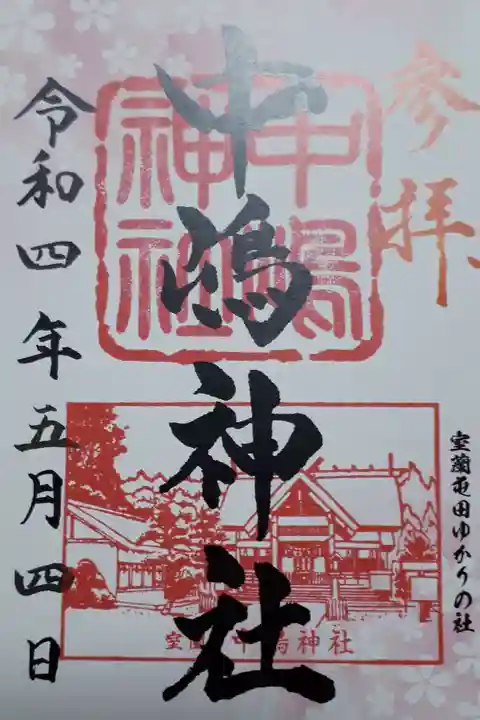 参拝
室蘭屯田ゆかりの社
中嶋神社
中嶋神社
室蘭 中嶋神社
令和四年五月四日